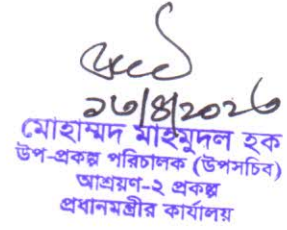 ১৩/৪/২০২৩
মোহাম্মদ মাহমুদল হক
উপ-প্রকল্প পরিচালক (উপসচিব)
আশ্রয়ণ-২ প্রকল্প
প্রধানমন্ত্রীর কার্যালয়